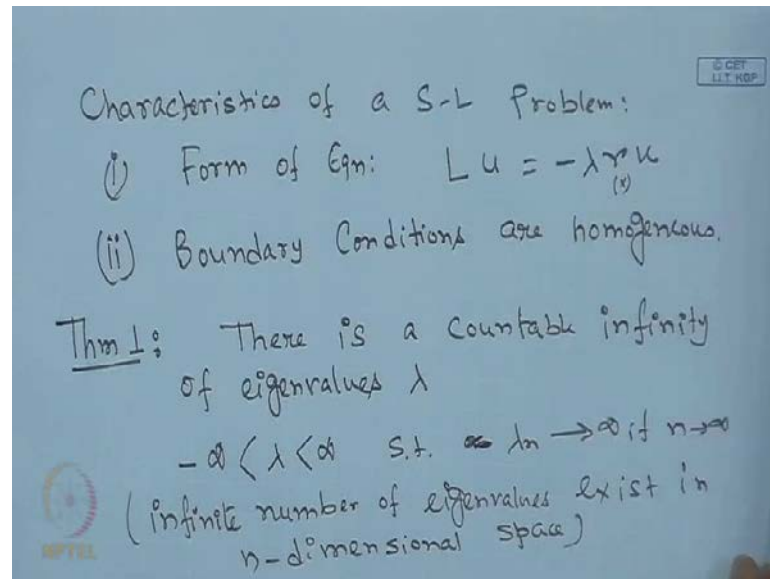 © CET
I.I.T. KGP
Characteristics of a S-L Problem:
(i) Form of Eqn: L u = -λ r u
(x)
(ii) Boundary Conditions are homogeneous.
Thm 1: There is a Countable infinity
of eigenvalues λ
-∞ < λ < ∞ s.t. λn → ∞ if n→∞
(infinite number of eigenvalues exist in
n-dimensional space)
NPTEL